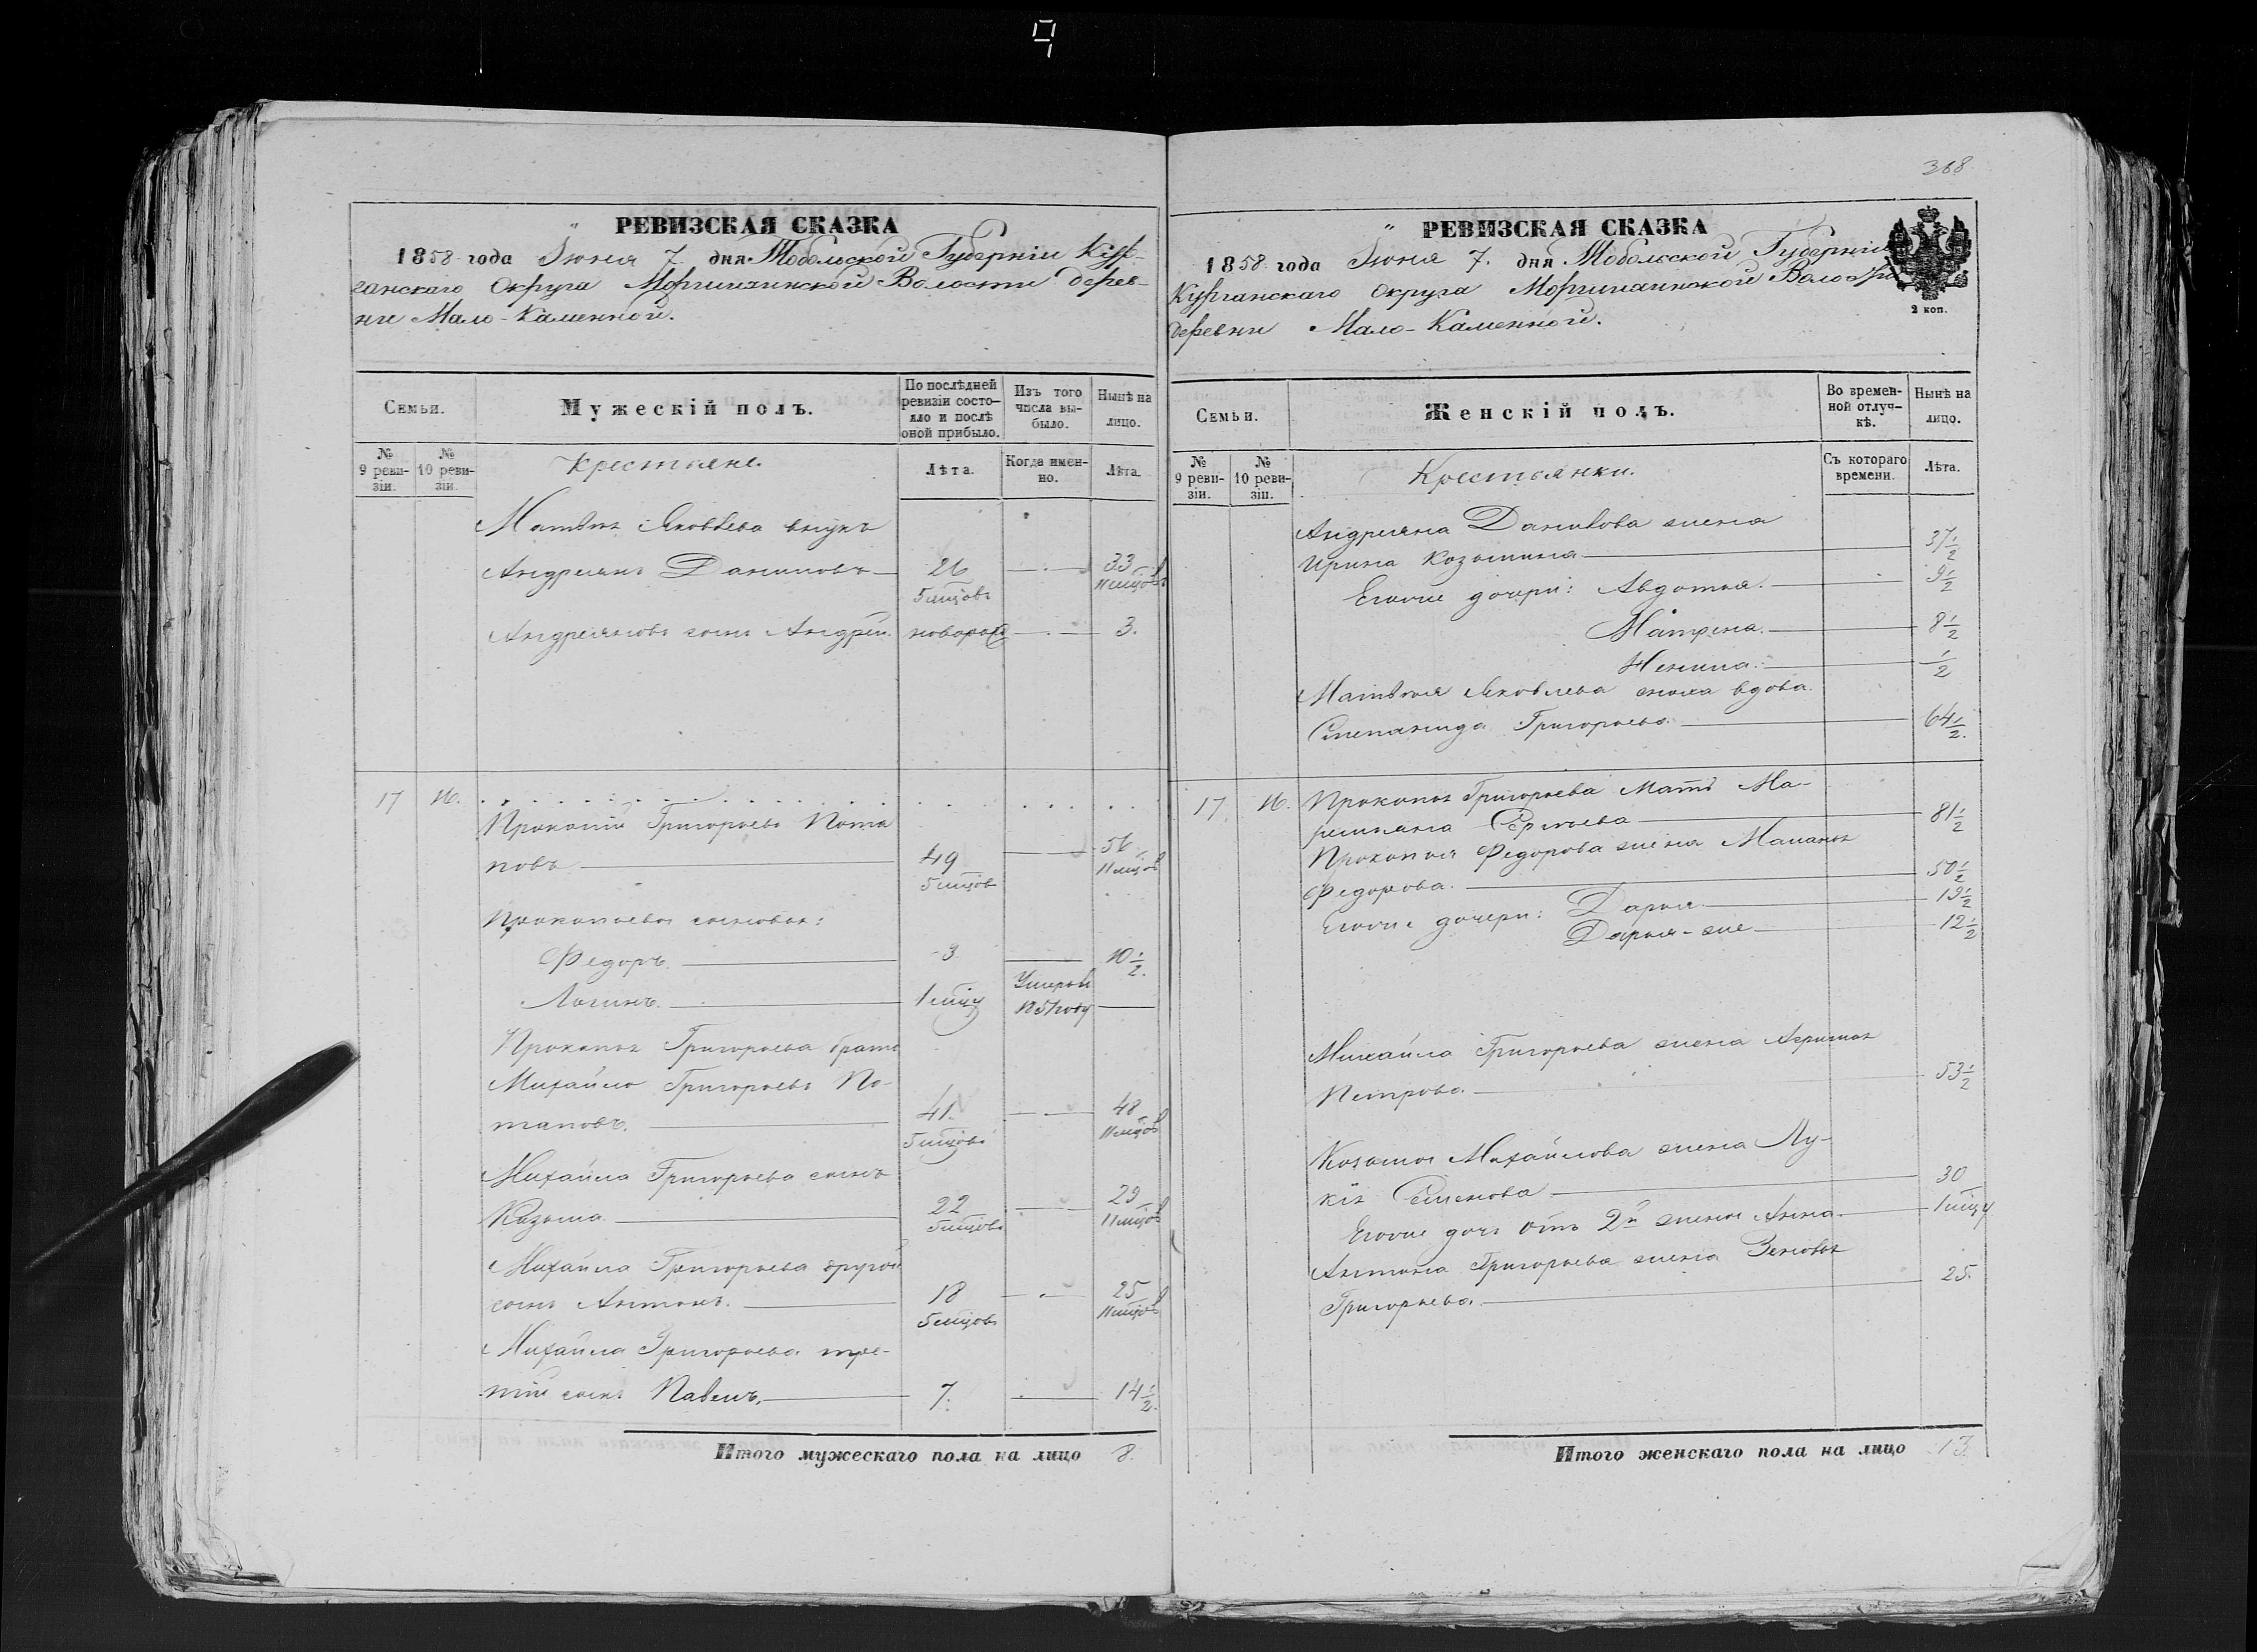 368
РЕВИЗСКАЯ СКАЗКА
1858 года Июня 7. дня Тобольской Губерніи Кур-
ганскаго Округа Моршихинской Волости дерев-
ни Мало-Каменной.
Семьи.
Мужескій полъ.
По послѣдней ревизіи состо-
яло и послѣ
оной прибыло.
Изъ того числа вы-
было.
Нынѣ на лицо.
№ 9 реви-
зіи.
№ 10 реви-
зіи.
Крестьяне.
Лѣта.
Когда имен-
но.
Лѣта.
Матвѣя Яковлева внукъ
Андреянъ Даниловъ 26 5 мѣцовъ 33 11 мѣцовъ
Андреяновъ сынъ Андрей. новорож 3.
17 16.
Прокопій Григорьевъ Пота
повъ 49 5 мѣцовъ 56 11 мѣцовъ
Прокопьевы сыновья:
Федоръ. 3 10 1/2.
Логинъ. 1 мѣцу Умеръ въ 1851 году
Прокопья Григорьева братъ
Михайло Григорьевъ По-
таповъ. 41. 5 мѣцовъ 48 11 мѣцовъ
Михайла Григорьева сынъ
Козьма 22 5 мѣцовъ 29 11 мѣцовъ
Михайла Григорьева другой
сынъ Антонъ. 18 5 мѣцовъ 25 11 мѣцовъ
Михайла Григорьева тре-
тій сынъ Павелъ. 7. 14 1/2.
Итого мужескаго пола на лицо 8.
РЕВИЗСКАЯ СКАЗКА
1858 года Июня 7. дня Тобольской Губерніи
Курганскаго Округа Моршихинской Волости
деревни Мало-Каменной.
2 коп.
Семьи.
Женскій полъ.
Во времен-
ной отлуч-
кѣ.
Нынѣ на лицо.
№ 9 реви-
зіи.
№ 10 реви-
зіи.
Крестьянки.
Съ котораго времени.
Лѣта.
Андреяна Данилова жена
Ирина Козьмина 37 1/2
Егоже дочери: Авдотья. 9 1/2
Матрена. 8 1/2
Ненила. 1/2
Матвѣя Яковлева сноха вдова
Степанида Григорьева. 64 1/2.
17. 16. Прокопья Григорьева Мать Ма-
Сергѣева 81 1/2
Прокопья Федорова жена Маланья
Федорова. 50 1/2
Егоже дочери: Дарья 19 1/2
Дарья-же 12 1/2
Михайла Григорьева жена
Петрова. 53 1/2
Козьмы Михайлова жена Лу-
кія Семенова 30
Егоже дочь отъ 2й жены Анна. 1 мѣцу
Антона Григорьева жена Зеновья
Григорьева. 25.
Итого женскаго пола на лицо 13.